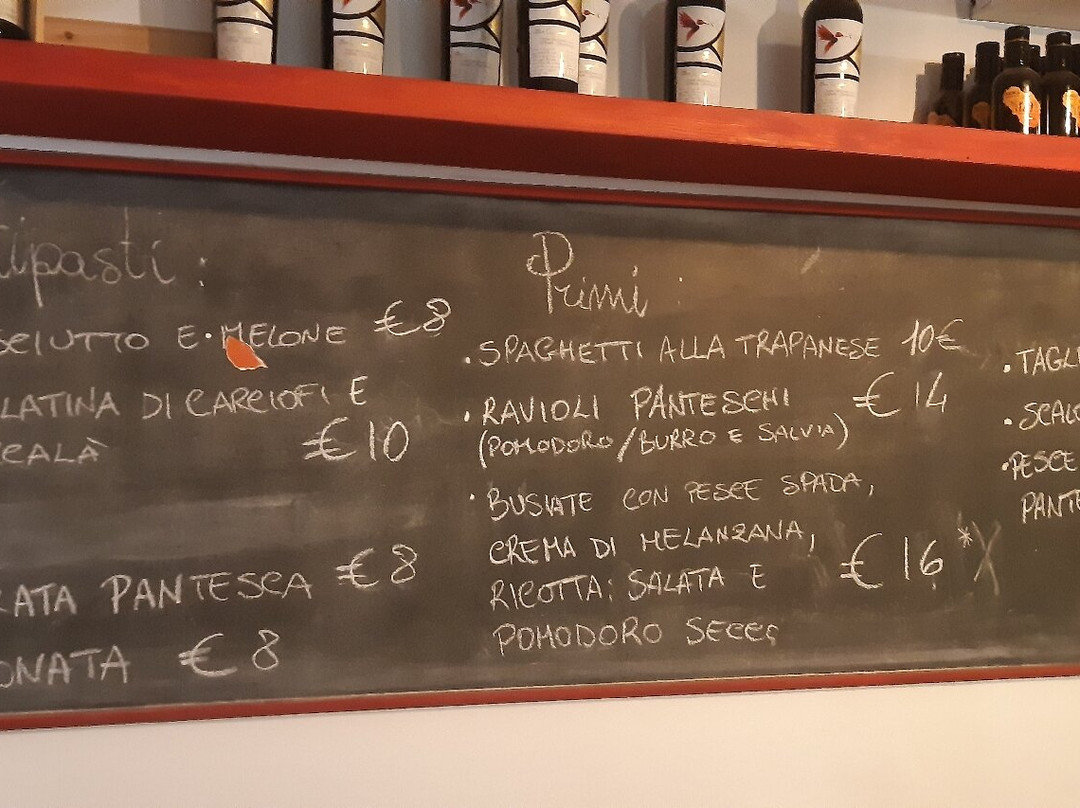 tipasti:
SCIUTTO E MELONE €8
LATINA DI CARCIOFI E
CALÀ €10
ATA PANTESCA €8
ONATA €8
Primi:
• SPAGHETTI ALLA TRAPANESE 10€
• RAVIOLI PANTESCHI €14
(POMODORO/BURRO E SALVIA)
• BUSIATE CON PESCE SPADA,
CREMA DI MELANZANA,
RICOTTA SALATA E €16 *
POMODORO SECCO
• TAGLI
• SCALO
• PESCE
PANTE